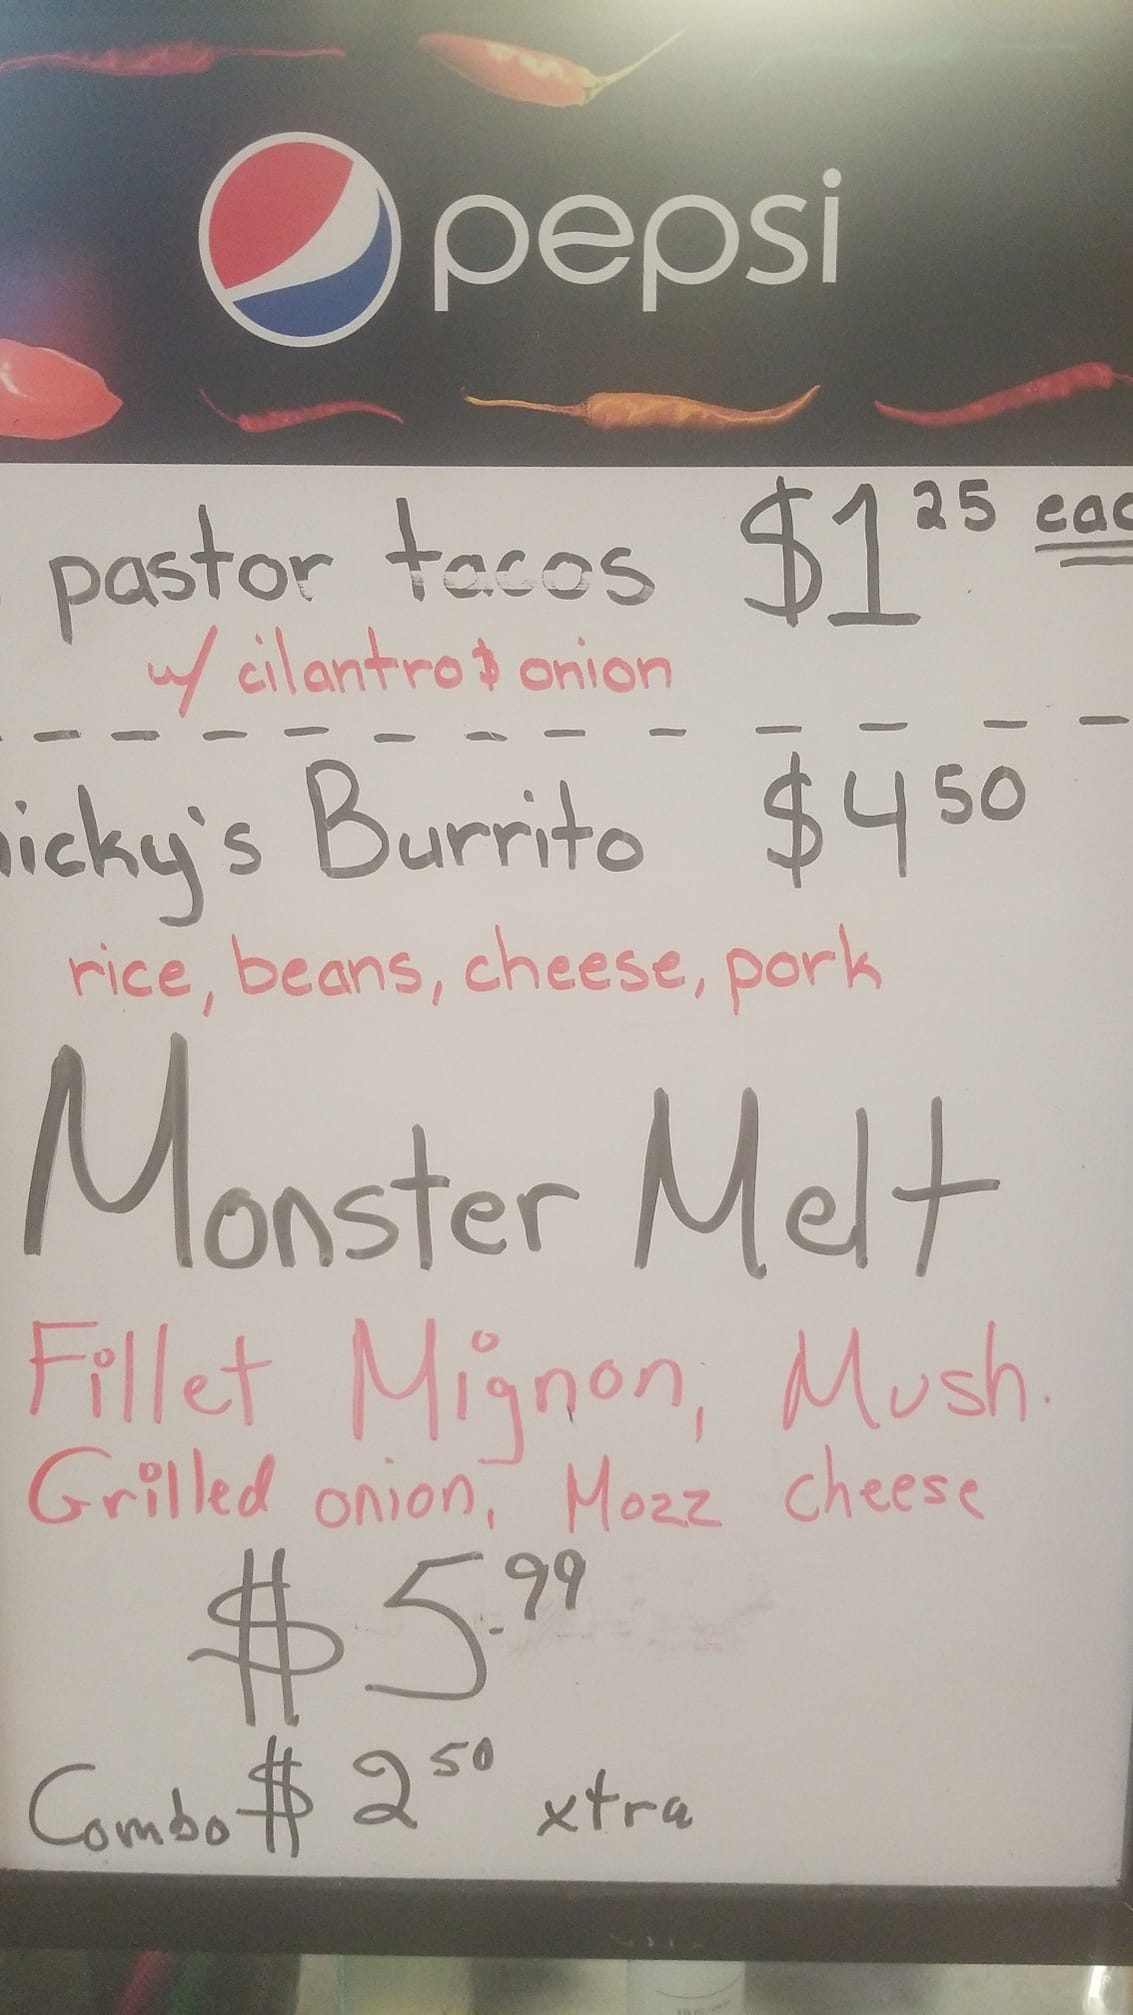 pepsi
pastor tacos $1.25 eac
w/ cilantro & onion
icky's Burrito $4.50
rice, beans, cheese, pork
Monster Melt
Fillet Mignon, Mush.
Grilled onion, Mozz cheese
$5.99
Combo $2.50 xtra